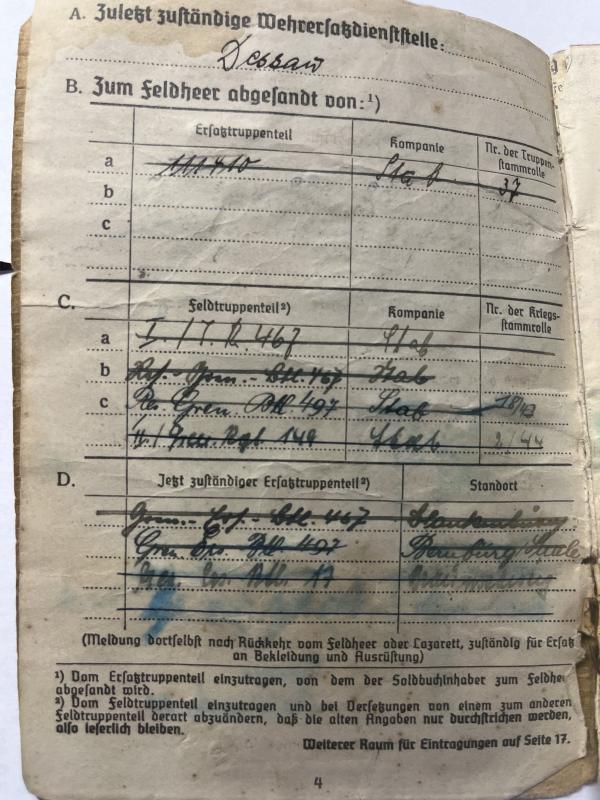 A. Zuletzt zuständige Wehrersatzdienststelle:
Dessau
B. Zum Feldheer abgesandt von:¹)
Ersatztruppenteil Kompanie Nr. der Truppenstammrolle
a Stab 37
b
c
C. Feldtruppenteil²) Kompanie Nr. der Kriegsstammrolle
a I./I.R. 467 Stab
b Res. Gren.-Btl. 467 Stab
c Res. Gren. Btl. 497 Stab 18/43
Gren. Rgt. 149 Stab 2/44
D. Jetzt zuständiger Ersatztruppenteil²) Standort
Gren.-Ers.-Btl. 467 Blankenburg
Gren. Ers. Btl. 497 Bernburg/Saale
Gren. Ers. Btl. 17
(Meldung dortselbst nach Rückkehr vom Feldheer oder Lazarett, zuständig für Ersatz
an Bekleidung und Ausrüstung)
¹) Vom Ersatztruppenteil einzutragen, von dem der Soldbuchinhaber zum Feldhee
abgesandt wird.
²) Vom Feldtruppenteil einzutragen und bei Versetzungen von einem zum anderen
Feldtruppenteil derart abzuändern, daß die alten Angaben nur durchstrichen werden,
also leserlich bleiben.
Weiterer Raum für Eintragungen auf Seite 17.
4